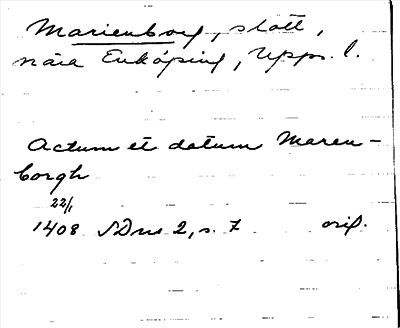 Marienborg, slott,
nära Enköping, Upps. l.
Actum et datum Maren-
borgh
22/1
1408 SDns 2, s. 7 orig.